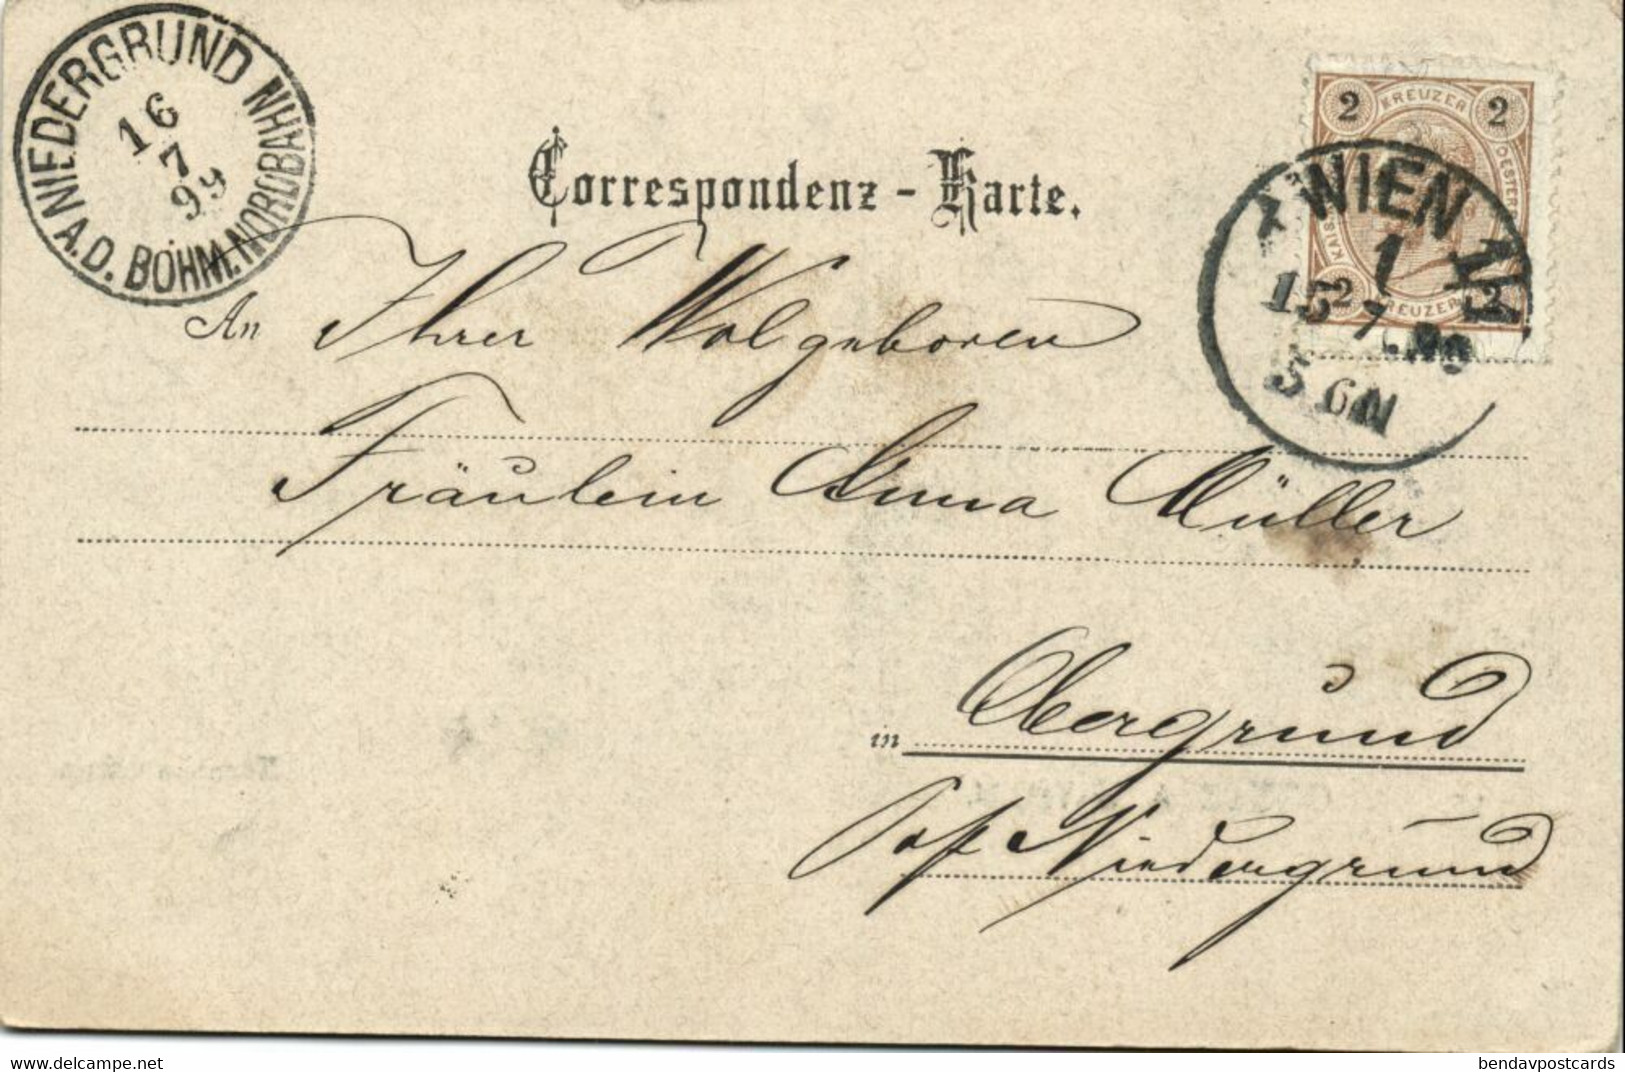 NIEDERGRUND A.D. BÖHM. NORDBAHN
16
7
99
Correspondenz-Karte.
2 KREUZER 2
WIEN
1
15 7.
5 6N
2 KREUZER 2
An Ihrer Wolgeboren
Fräulein Anna Müller
in Obergrund
Post Niedergrund
delcampe.net
bendavpostcards